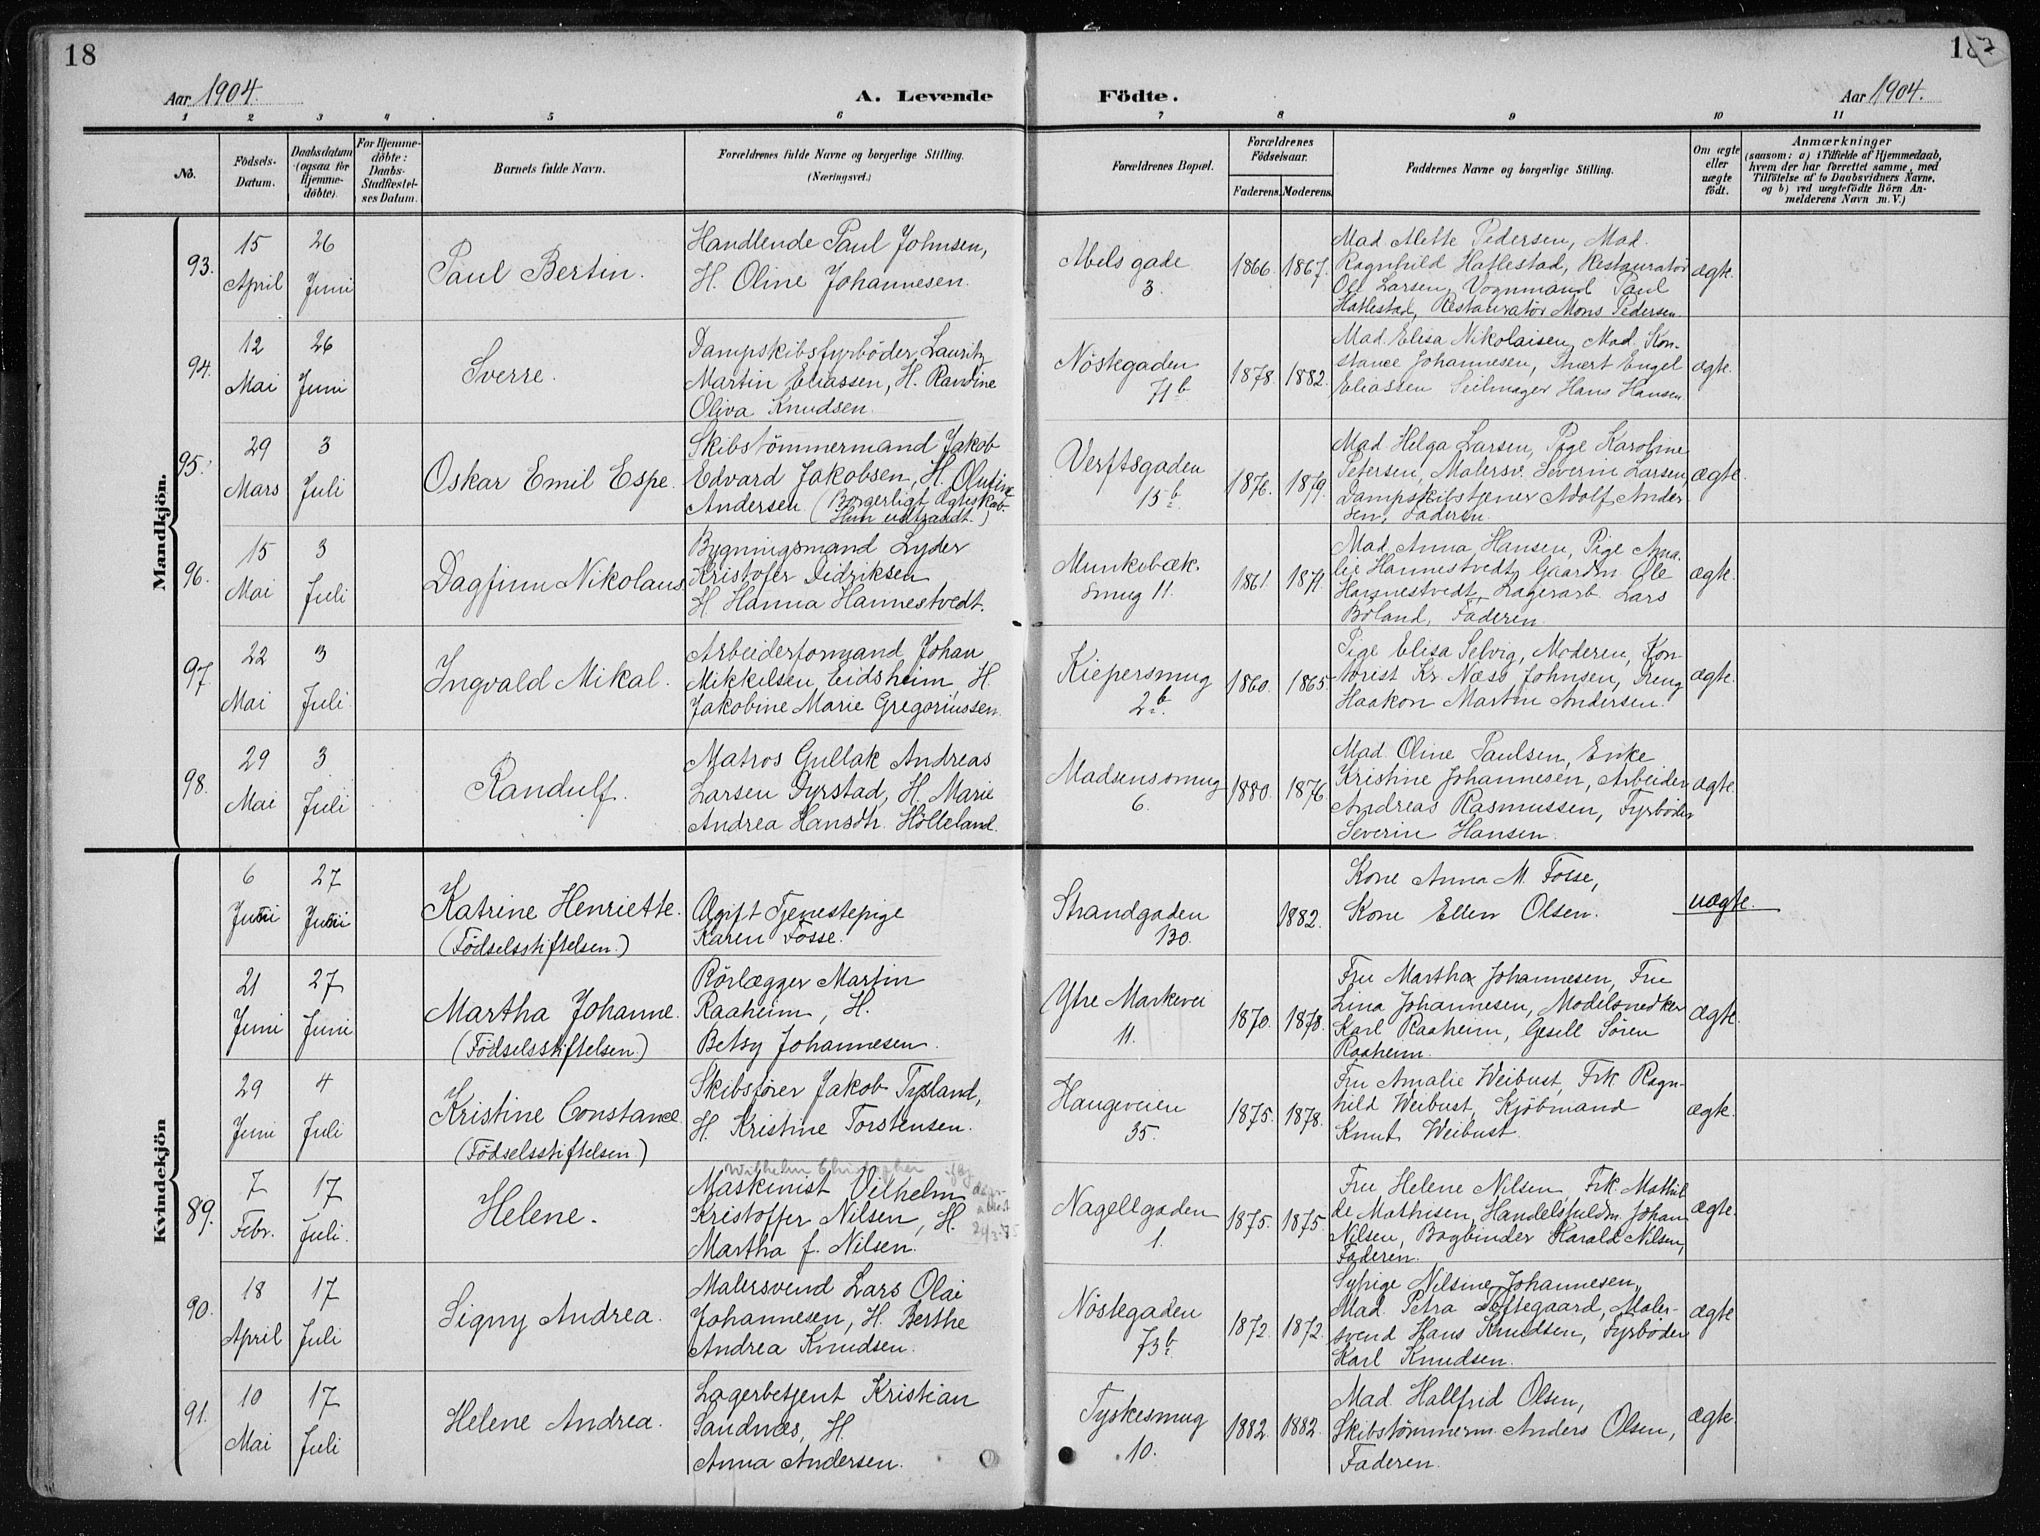 18
Aar 1904.
A. Levende
Födte.
Aar 1904.
18
1
2
3
4
5
6
7
8
9
10
11
No.
Födsels-
Datum.
Daabsdatum
(ogsaa for
Hjemme-
døbte).
For Hjemme-
døbte:
Daabs-
Stadfæstel-
ses Datum.
Barnets fulde Navn.
Forældrenes fulde Navne og borgerlige Stilling.
(Næringsvei.)
Forældrenes Bopæl.
Forældrenes
Födselsaar.
Faderens.
Moderens.
Faddernes Navne og borgerlige Stilling.
Om ægte
eller
uægte
født.
Anmærkninger
(saasom: a) i Tilfælde af Hjemmedaab,
hvem der har forrettet samme, med
Tilföielse af to Daabsvidners Navne,
og b) ved uægtefödte Börn An-
melderens Navn m. V.)
Mandkjön.
93.
15
April
26
Juni
Paul Bertin.
Handlende Paul Johnsen,
H. Oline Johannesen.
Abels gade
3.
1866.
1867.
Mad Alette Pedersen, Mad.
Ragnhild Hatlestad, Restauratör
Ole Larsen, Vognmand Paul
Hatlestad, Restauratör Mons Pedersen.
ægte.
94.
12
Mai
26
Juni
Sverre.
Dampskibsfyrböder Lauritz
Martin Eliassen, H. Randine
Oliva Knudsen.
Nöstegaden
71b
1878.
1882.
Mad. Elisa Nikolaisen, Mad. Kon-
stance Johannesen, Engel
Eliassen Seilmager Hans Hansen
ægte.
95.
29
Mars
3
Juli
Oskar Emil Espe.
Skibstømmermand Jakob
Edvard Jakobsen, H. Olufine
Andersen (Borgerligt Ægteskab.
Hun udtraadt.)
Verftsgaden
15b
1876.
1879.
Mad Helga Larsen, Pige Karoline
Petersen, Malersv. Severin Larsen,
Dampskibstjener Adolf Ander
sen, Faderen.
ægte.
96.
15
Mai
3
Juli
Dagfinn Nikolaus.
Bygningsmand Lyder
Kristofer Didriksen
H Hanna Hannestvedt.
Munkebæk-
smug 11.
1861.
1871.
Mad. Anna Hansen, Pige Ama-
lie Hannestvedt, Gaardm Ole
Hannestvedt, Lagerarb. Lars
Böland, Faderen.
ægte.
97.
22
Mai
3
Juli.
Ingvald Mikal.
Arbeiderformand Johan
Mikkelsen Eidsheim, H.
Jakobine Marie Gregoriussen.
Kiepersmug
2b.
1860.
1865.
Pige Elisa Selvig, Moderen, Kon-
torist Kr. Næss Johnsen, Dreng
Haakon Martin Andersen.
ægte.
98.
29
Mai
3
Juli
Randulf.
Matros Gullak Andreas
Larsen Dyrstad, H. Marie
Andrea Hansdtr. Hölleland.
Madsensmug
6.
1880.
1876.
Mad Oline Paulsen, Enke
Kristine Johannesen, Arbeider
Andreas Rasmussen, Fyrböder
Severin Hansen.
ægte.
Kvindekjön
6
Juni
27
Juni
Katrine Henriette.
(Födselsstiftelsen.)
Ugift Tjenestepige
Karen Fosse.
Strandgaden
130.
1882.
Kone Anna M. Fosse,
Kone Ellen Olsen.
uægte.
21
Juni
27
Juni
Martha Johanne.
(Födselsstiftelsen.)
Rörlægger Martin
Raaheim, H.
Betsy Johannesen.
Ytre Markevei
11.
1870.
1878.
Fru Martha Johannesen, Fru
Lina Johannesen, Modelsnedker
Karl Raaheim, Gesell Sören
Raaheim.
ægte.
29
Juni
4
Juli
Kristine Constance
(Födselsstiftelsen.)
Skibsförer Jakob Tysland,
H. Kristine Torstensen.
Haugeveien
35.
1875.
1878.
Fru Amalie Weibust, Frk. Ragn-
hild Weibust, Kjöbmand
Knut Weibust.
ægte.
89.
7
Febr.
17
Juli.
Helene.
Wilhelm Christopher
Maskinist Vilhelm
Kristoffer Nilsen, H.
Martha f. Nilsen.
attest
24/3-75
Nagellgaden
1.
1875.
1875.
Fru Helene Nilsen, Frk. Mathil
de Mathisen, Handelsfuldm. Johan
Nilsen, Bogbinder Harald Nilsen,
Faderen.
ægte.
90.
18
April
17
Juli
Signy Andrea.
Malersvend Lars Olai
Johannesen, H. Berthe
Andrea Knudsen.
Nöstegaden
73b.
1872.
1872.
Sypige Nilsine Johannesen,
Mad. Petra Toftegaard, Maler-
svend Hans Knudsen, Fyrböder
Karl Knudsen.
ægte
91.
10
Mai
17
Juli
Helene Andrea.
Lagerbetjent Kristian
Sandnæs, H.
Anna Andersen.
Tyskesmug
10.
1882.
1882.
Mad Hallfrid Olsen,
Skibstömmerm. Anders Olsen,
Faderen.
ægte.